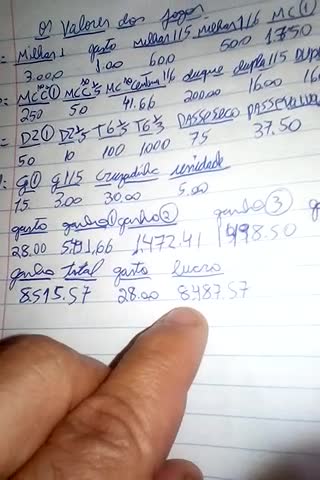 Os Valores dos jogos
= Milhar 1 gasto milhar 1/5 milhar 1/6 MC ①
3.000 1.00 600 500 1.750
MC C ① MC C centena 1/6 duque dupla 1/5 DUPL
250 50 41.66 200.00 16.00 16
= DZ ① DZ 1/5 T6 1/5 T6 1/5 PASSE SECO PASSE VAI
50 10 100 1000 75 37.50
: G ① G 1/5 cruzadinha unidade
15 3.00 30.00 5.00
gasto ganho ① ganho ② ganho ③ g
28.00 1.472.41 98.50
ganho total gasto lucro
8.515.57 28.00 8.487.57